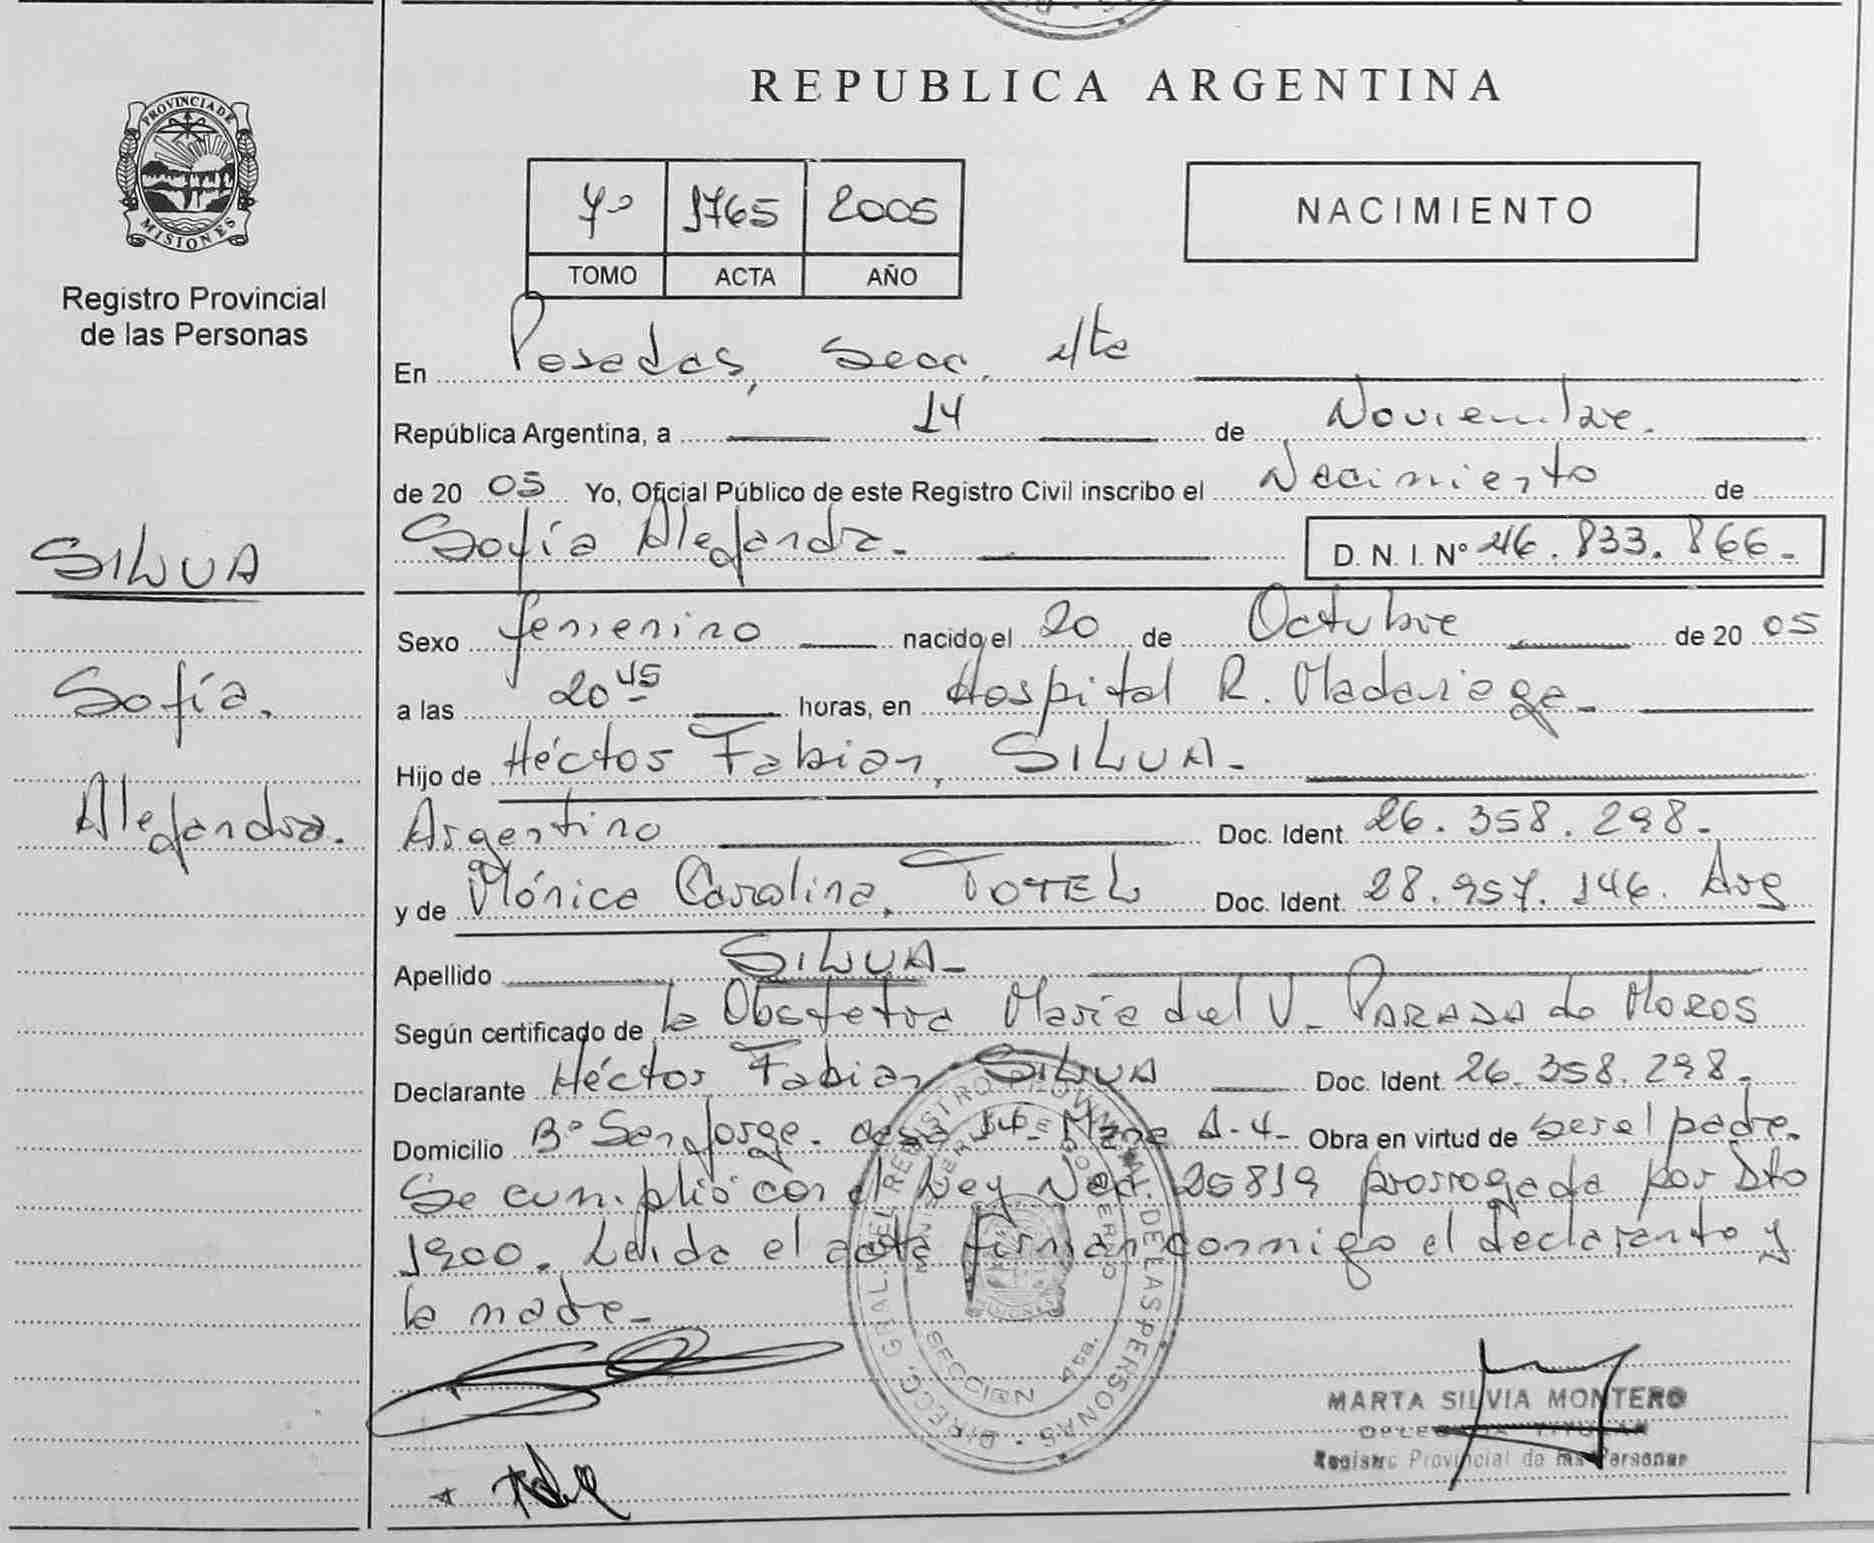 REPUBLICA ARGENTINA
PROVINCIA DE MISIONES
Registro Provincial
de las Personas
7º 1765 2005
TOMO ACTA AÑO
NACIMIENTO
En Posadas, Secc. 4ta
República Argentina, a 14 de Noviembre.
de 20 05 Yo, Oficial Público de este Registro Civil inscribo el Nacimiento de
SILVA
Sofía Alejandra. D. N. I. Nº 46.833.866.-
Sexo femenino nacido el 20 de Octubre de 20 05
Sofía.
a las 20 45 horas, en Hospital R. Madariaga.
Hijo de Héctor Fabian, SILVA.-
Alejandra.
Argentino Doc. Ident. 26.358.298.-
y de Mónica Carolina, TOTEL Doc. Ident. 28.957.146. Arg
Apellido SILVA-
Según certificado de la Obstetra Maria del V. PARADA de MOROS
Declarante Héctor Fabian SILVA Doc. Ident. 26.358.298.-
Domicilio Bº San Jorge. casa 14- Mzna A-4- Obra en virtud de ser el padre.
Se cumplió con el Ley Nac. 25819 prorrogada por Dto
1900. Leida el acta firman conmigo el declarante y
la madre-
DIRECC. GRAL. DEL REGISTRO PROVINCIAL DE LAS PERSONAS
SECCION 4ta.
MARTA SILVIA MONTERO
DELEGADA TITULAR
Registro Provincial de las Personas